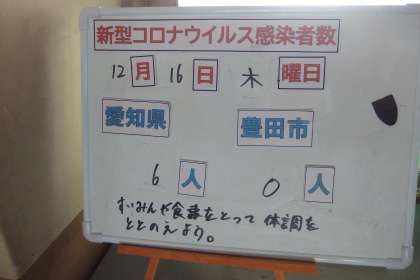 新型コロナウイルス感染者数
12月16日 木 曜日
愛知県 豊田市
6人 0人
すいみんや食事をとって 体調を
ととのえよう。